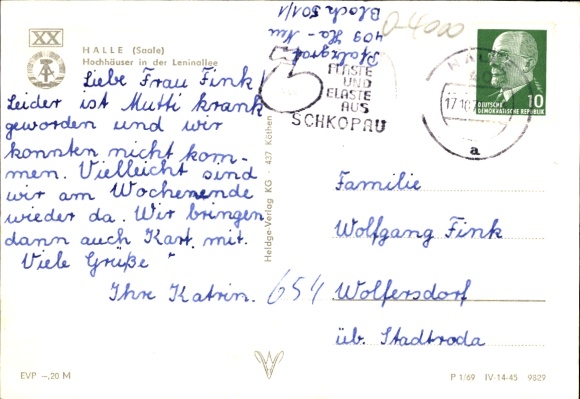 XX
HALLE (Saale)
Hochhäuser in der Leninallee
Liebe Frau Fink!
Leider ist Mutti krank
geworden und wir
konnten nicht kom-
men. Vielleicht sind
wir am Wochenende
wieder da. Wir bringen
dann auch Kart. mit.
Viele Grüße
Ihre Katrin.
EVP –,20 M
Heldge-Verlag KG · 437 Köthen
Pfalzgraf
409 Ha - Neu
Block 501/1
PLASTE
UND
ELASTE
AUS
SCHKOPAU
HALLE
40
17.10.
a
10
DEUTSCHE
DEMOKRATISCHE REPUBLIK
Familie
Wolfgang Fink
654 Wolfersdorf
üb. Stadtroda
P 1/69 IV-14-45 9829